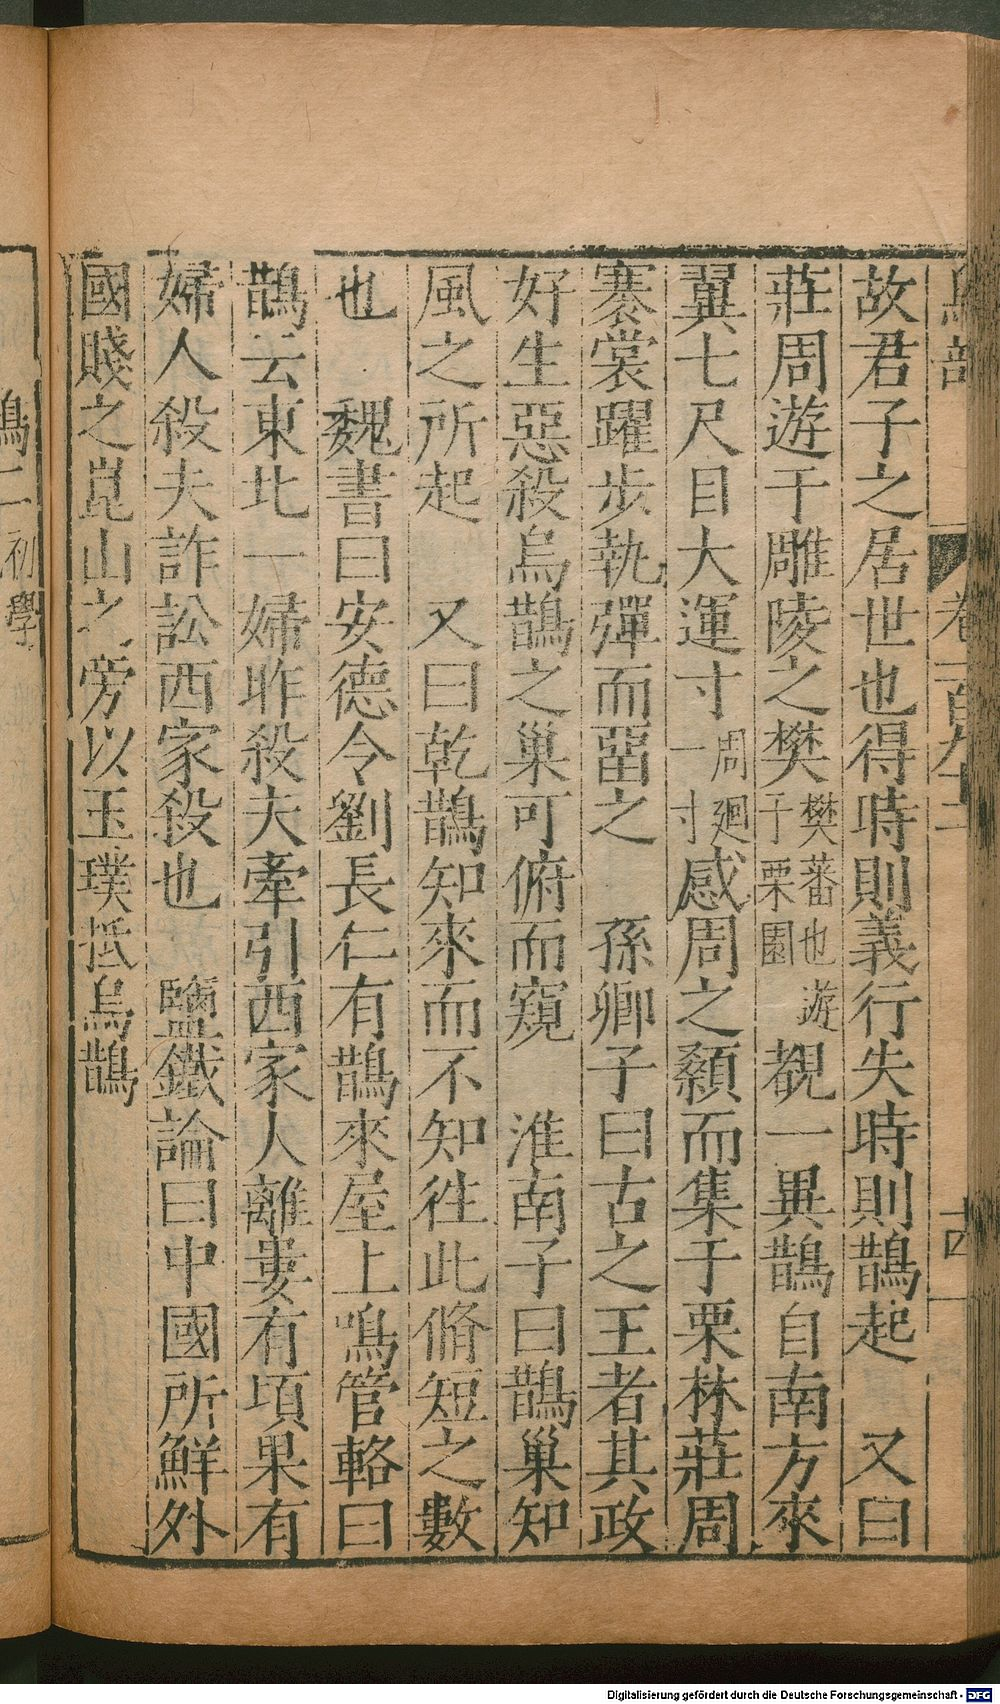 鳥部 卷一百九十二 十四
故君子之居世也得時則義行失時則鵲起　又曰
莊周遊于雕陵之樊樊蕃也遊于栗園覩一異鵲自南方來
翼七尺目大運寸周廻一寸感周之顙而集于栗林莊周
褰裳躍步執彈而畱之　孫卿子曰古之王者其政
好生惡殺烏鵲之巢可俯而窺　淮南子曰鵲巢知
風之所起　又曰乾鵲知來而不知徃此脩短之數
也　魏書曰安德令劉長仁有鵲來屋上鳴管輅曰
鵲云東北一婦昨殺夫牽引西家人離婁有頃果有
婦人殺夫詐訟西家殺也　鹽鐵論曰中國所鮮外
國賤之崑山之旁以玉璞抵烏鵲
鵲二初學
Digitalisierung gefördert durch die Deutsche Forschungsgemeinschaft - DFG